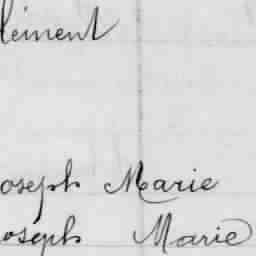 lément
oseph Marie
oseph Marie